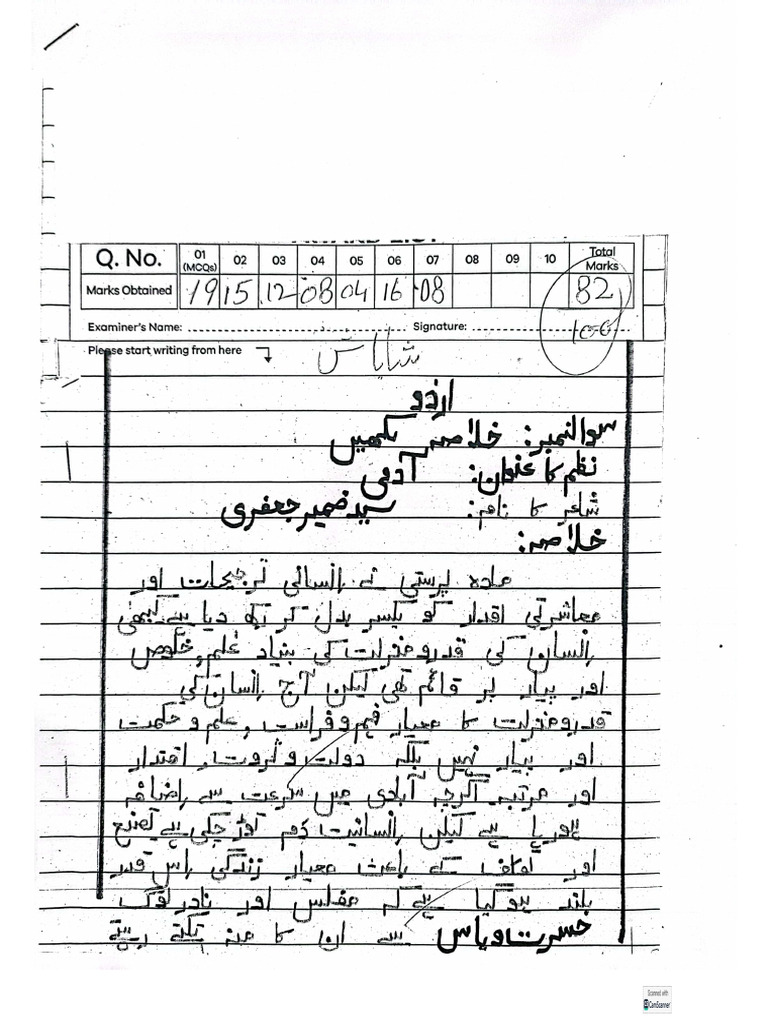 Q. No. 01 (MCQs) 02 03 04 05 06 07 08 09 10 Total Marks
Marks Obtained 19 15 12 08 04 16 08 82
100
Examiner's Name: Signature:
Please start writing from here شاباش
اردو
سوالنمبر: خلاصہ لکھیں
نظم کا عنوان: آدمی
شاعر کا نام: سید ضمیر جعفری
خلاصہ:
مادہ پرستی نے انسانی ترجیحات اور
معاشرتی اقدار کو یکسر بدل کر رکھ دیا ہے کبھی
انسان کی قدرومنزلت کی بنیاد علم، خلوص
اور پیار پر قائم تھی لیکن آج انسان کی
قدرومنزلت کا معیار فہم و فراست، علم و حکمت
اور پیار نہیں بلکہ دولت و ثروت، اقتدار
اور مرتبہ اگرچہ آبادی میں سرعت سے اضافہ
ہورہا ہے لیکن انسانیت دم توڑ چکی ہے تصنع
اور تکلف کے باعث معیار زندگی اس قدر
بلند ہوگیا ہے کہ مفلس اور نادر لوگ
حسرت ویاس سے ان کا منہ تکتے رہتے
Scanned with
CamScanner